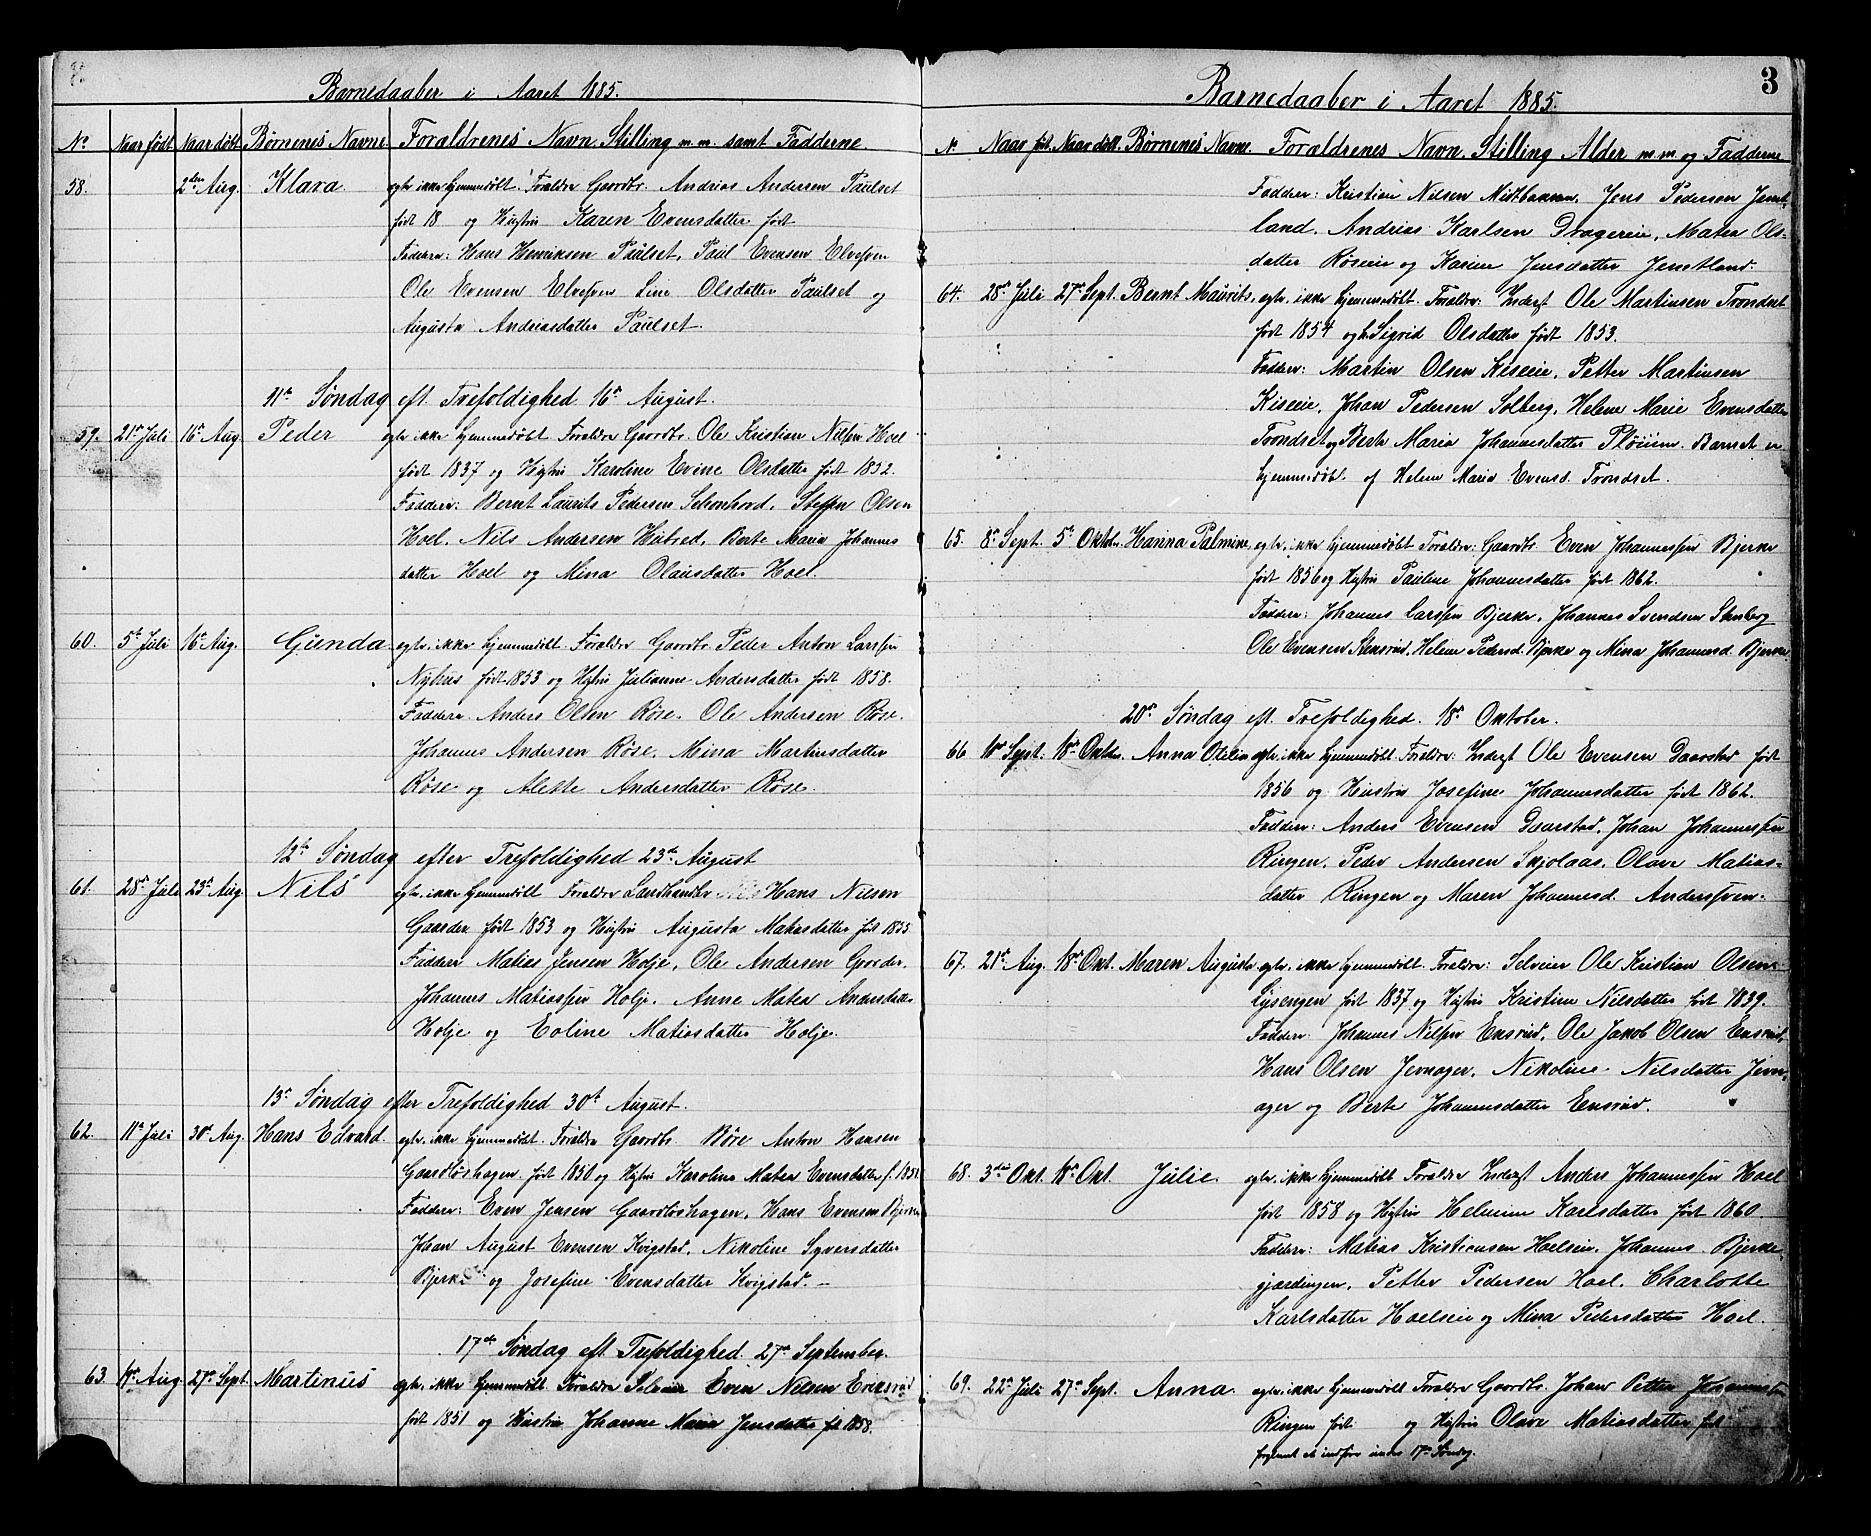 Barnedaaber i Aaret 1885.
No Naar født Naar døbt Børnenes Navne Forældrenes Navn Stilling m m. samt Fadderne
58. 2den Aug. Klara egte, ikke hjemmedøbt. Forældre Gaardbr. Andrias Andersen Paulset
født 18 og Hustru Karen Evensdatter født
Faddere: Hans Henriksen Paulset, Paul Evensen Elvespen
Ole Evensen Elvespen Line Olsdatter Paulset og
Augusta Andriasdatter Paulset.
11te Søndag eft. Trefoldighed 16de August.
59. 21de Juli 16de Aug. Peder egte ikke hjemmedøbt Forældre Gaardbr. Ole Kristian Nilsen Hoel
født 1837 og Hustru Karoline Evine Olsdatter født 1852.
Faddere: Bernt Laurits Pedersen Schonhord, Steffen Olsen
Hoel, Nils Andersen Hubred, Berte Maria Johannes
datter Hoel og Mina Olausdatter Hoel.
60. 5te Juli 16de Aug. Gunda egte, ikke hjemmedøbt Forældre Gaardbr. Peder Anton Larssen
Nyhus født 1853 og Hustru Julianne Andersdatter født 1858.
Faddere Anders Olsen Røse, Ole Andersen Røse,
Johannes Andersen Røse, Mina Martinsdatter
Røse og Alette Andersdatter Røse.
12te Søndag efter Trefoldighed 23de August
61. 28de Juli 23de Aug. Nils egte, ikke hjemmedøbt Forældre Landhandler Hans Nilsen
Gaarder født 1853 og Hustru Augusta Matiasdatter født 1855
Faddere Matias Jensen Holje, Ole Andersen Gaarder,
Johannes Matiassen Holje, Anne Matea Andersdatter
Holje og Eoline Matiasdatter Holje.
13de Søndag efter Trefoldighed 30te August.
62. 11te Juli 30te Aug. Hans Edvard egte, ikke hjemmedøbt Forældre Gaardbr. Børe Anton Hansen
Gaardløshagen født 1850 og Hustru Karoline Matea Evensdatter f. 1851
Faddere: Even Jensen Gaardløshagen, Hans Evensen Bjerke
Johan August Evensen Kvigstad, Nikoline Syversdatter
Bjerke og Josefine Evensdatter Kvigstad.
17de Søndag eft. Trefoldighed 27de September.
63. Aug. 27de Sept. Martinus egte, ikke hjemmedøbt Forældre Selveier Even Nilsen Eriksrud
født 1851 og Hustru Johanne Maria Jensdatter født 1858.
3
Barnedaaber i Aaret 1885.
No Naar født Naar døbt. Børnenes Navne. Forældrenes Navn. Stilling Alder m.m og Fadderne
Faddere: Kristian Nilsen Midtbakken, Jens Pedersen Jemt-
land, Andrias Karlsen Drogereie, Matea Ols-
datter Røseeie og Karine Jensdatter Jemtland.
64. 28de Juli 27de Sept. Bernt Maurits, egte, ikke hjemmedøbt. Forældre: Inderst Ole Martinsen Trondset
født 1854 og h. Sigrid Olsdatter født 1853.
Faddere: Martin Olsen Kiseeie, Petter Martinsen
Kiseeie, Johan Pedersen Solberg, Helene Marie Evensdatter
Trondset og Berte Maria Johannesdatter Pløiim. Barnet er
hjemmedøbt af Helene Maria Evensd. Trondset.
65. 8de Sept. 5te Oktober Hanna Palmine, egte, ikke hjemmedøbt Forældre: Gaardbr Even Johannessen Bjerke
født 1856 og Hustru Pauline Johannesdatter født 1862.
Faddere: Johannes Larssen Bjerke, Johannes Svendsen Stenberg
Ole Evensen Stensrud, Helene Pedersd. Bjerke og Mina Johannesd. Bjerke
20de Søndag eft. Trefoldighed. 18de Oktober.
66 10de Sept. 18de Oktober Anna Oteline egte, ikke hjemmedøbt Forældre: Inderst Ole Evensen Daarstad født
1856 og Hustru Josefine Johannesdatter født 1862.
Faddere: Anders Evensen Daarstad, Johan Johannessen
Ringen, Peder Andersen Skjolaas, Olave Matias-
datter Ringen og Maren Johannesd. Anderssven-
67. 21de Aug. 18de Okt. Maren Auguste egte, ikke hjemmedøbt. Forældre: Selveier Ole Kristian Olsen
Lysengen født 1837 og Hustru Kristine Nilsdatter født 1839.
Faddere Johannes Nilssen Ensrud, Ole Jakob Olsen Ensrud,
Hans Olsen Jevnager, Nikoline Nilsdatter Jevn-
ager og Berte Johannesdatter Ensrud.
68. 3die Okt. 18de Okt. Julie egte, ikke hjemmedøbt Forældre Inderst Anders Johannessen Hoel
født 1858 og Hustru Helmine Karlsdatter født 1860.
Faddere: Matias Kristiansen Hoelseie, Johannes Bjerke-
gjærdingen, Petter Pedersen Hoel, Charlotte
Karlsdatter Hoelseie og Mina Pedersdatter Hoel.
69. 22de Juli 27de Sept. Anna egte, ikke hjemmedøbt Forældre Gaardbr. Johan Petter Johannessen
Ringen født og Hustru Olave Matiasdatter født
forglemt at indføre under 17de Søndag.